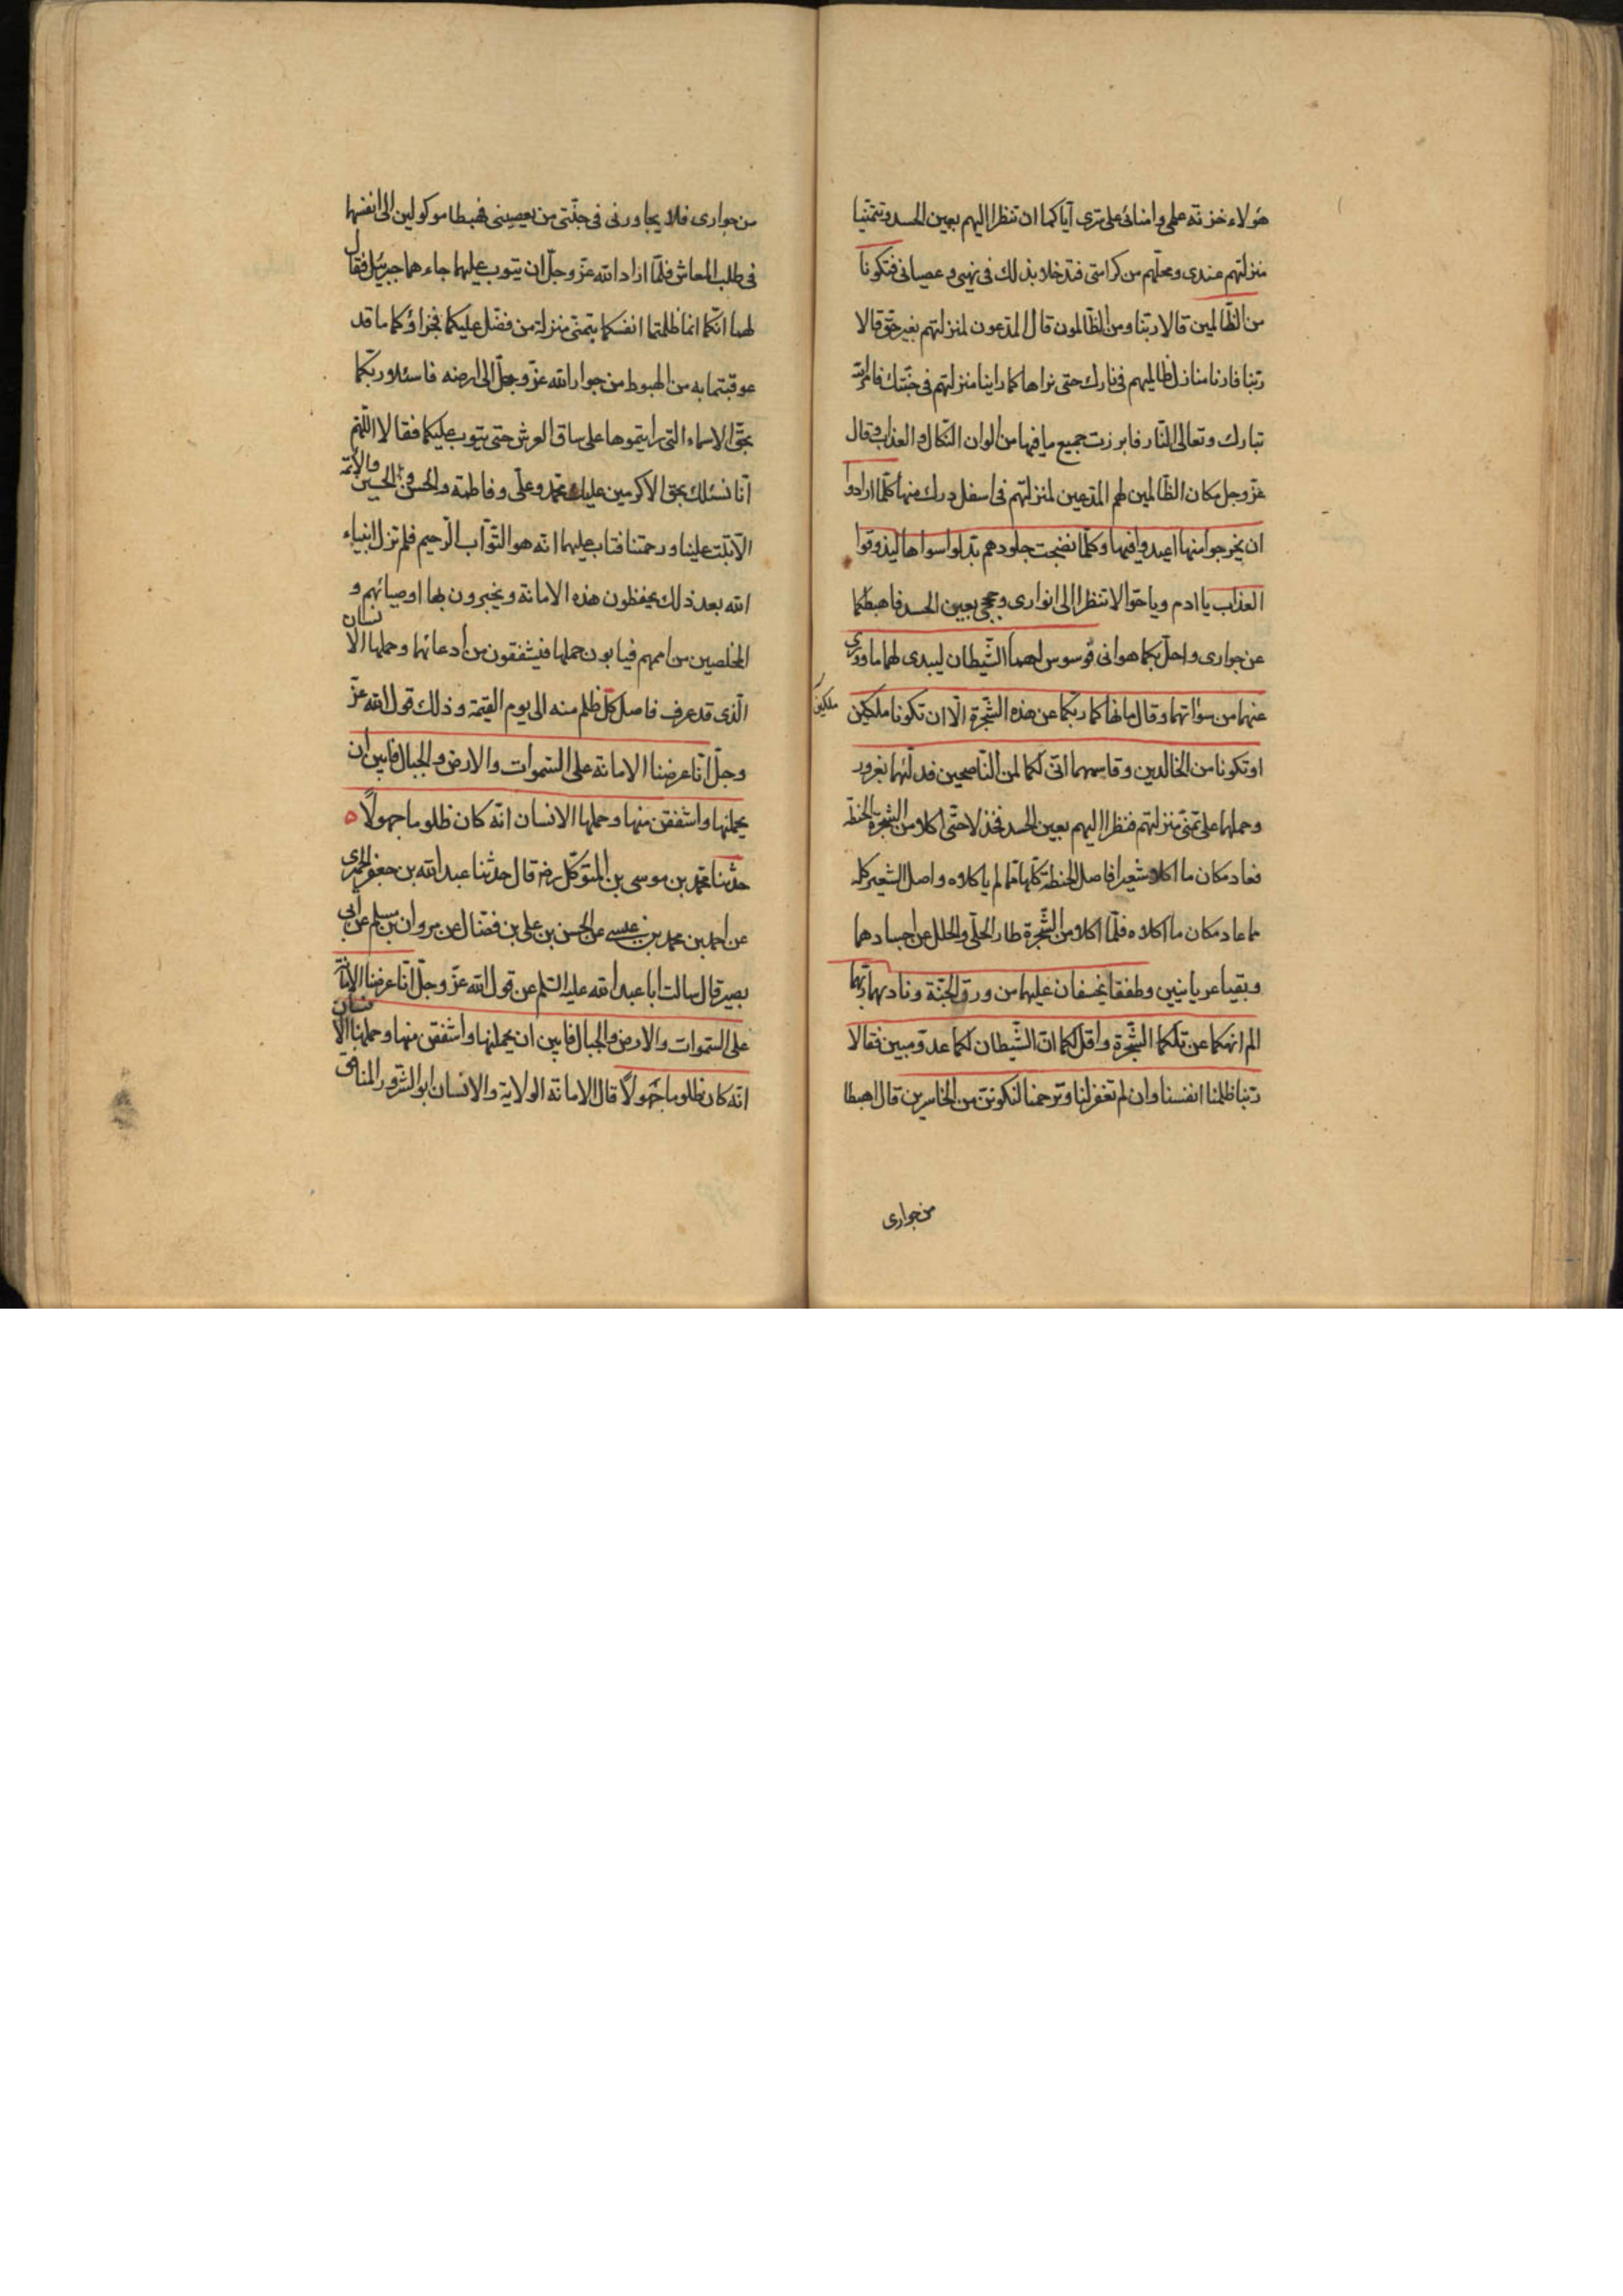 هؤلاء خزنة علمي وامنائي على سري اياكما ان تنظرا اليهم بعين الحسد وتتمنيا
منزلتهم عندي ومحلهم من كرامتي فتدخلا بذلك في نهيي وعصياني فتكونا
من الظالمين قالا ربنا ومن الظالمون قال المدعون لمنزلتهم بغير حق قالا
ربنا فارنا منازل ظالميهم في نارك حتى نراها كما راينا منزلتهم في جنتك فامر الله
تبارك وتعالى النار فابرزت جميع ما فيها من الوان النكال والعذاب وقال
عز وجل مكان الظالمين لهم المدعين لمنزلتهم في اسفل درك منها كلما ارادوا
ان يخرجوا منها اعيدوا فيها وكلما نضجت جلودهم بدلوا سواها ليذوقوا
العذاب يا ادم ويا حوا لا تنظرا الى انواري وحججي بعين الحسد فاهبطكما
عن جواري واحل بكما هواني فوسوس لهما الشيطان ليبدي لهما ما ووري
عنهما من سواتهما وقال ما نهاكما ربكما عن هذه الشجرة الا ان تكونا ملكين
ملكين
او تكونا من الخالدين وقاسمهما اني لكما لمن الناصحين فدلهما بغرور
وحملهما على تمني منزلتهم فنظرا اليهم بعين الحسد فخذلا حتى اكلا من الشجرة الحنطة
فعاد مكان ما اكلا شعيرا فاصل الحنطة كلها مما لم ياكلاه واصل الشعير كله
مما عاد مكان ما اكلاه فلما اكلا من الشجرة طار الحلي والحلل عن اجسادهما
وبقيا عريانين وطفقا يخصفان عليهما من ورق الجنة ونادىهما ربهما
الم انهكما عن تلكما الشجرة واقل لكما ان الشيطان لكما عدو مبين فقالا
ربنا ظلمنا انفسنا وان لم تغفر لنا وترحمنا لنكونن من الخاسرين قال اهبطا
من جواري
من جواري فلا يجاورني في جنتي من يعصيني فهبطا موكولين الى انفسهما
في طلب المعاش فلما اراد الله عز وجل ان يتوب عليهما جاءهما جبرئيل فقال
لهما انكما انما ظلمتما انفسكما بتمني منزلة من فضل عليكما فجزاؤكما ما قد
عوقبتما به من الهبوط من جوار الله عز وجل الى ارضه فاسئلا ربكما
بحق الاسماء التي رايتموها على ساق العرش حتى يتوب عليكما فقالا اللهم
انا نسئلك بحق الاكرمين عليك محمد وعلي وفاطمة والحسن والحسين والائمة
الا تبت علينا ورحمتنا فتاب عليهما انه هو التواب الرحيم فلم تزل انبياء
الله بعد ذلك يحفظون هذه الامانة ويخبرون بها اوصيائهم و
المخلصين من اممهم فيابون حملها فيشفقون من ادعائها وحملها الانسان
الذي قد عرف فاصل كل ظلم منه الى يوم القيمة وذلك قول الله عز
وجل انا عرضنا الامانة على السموات والارض والجبال فابين ان
يحملنها واشفقن منها وحملها الانسان انه كان ظلوما جهولا ه
حدثنا محمد بن موسى بن المتوكل رضه قال حدثنا عبد الله بن جعفر الحميري
عن احمد بن محمد بن عيسى عن الحسن بن علي بن فضال عن مروان بن مسلم عن ابي
بصير قال سالت ابا عبد الله عليه السلم عن قول الله عز وجل انا عرضنا الامانة
على السموات والارض والجبال فابين ان يحملنها واشفقن منها وحملها الانسان
انه كان ظلوما جهولا قال الامانة الولاية والانسان ابو الشرور المنافق